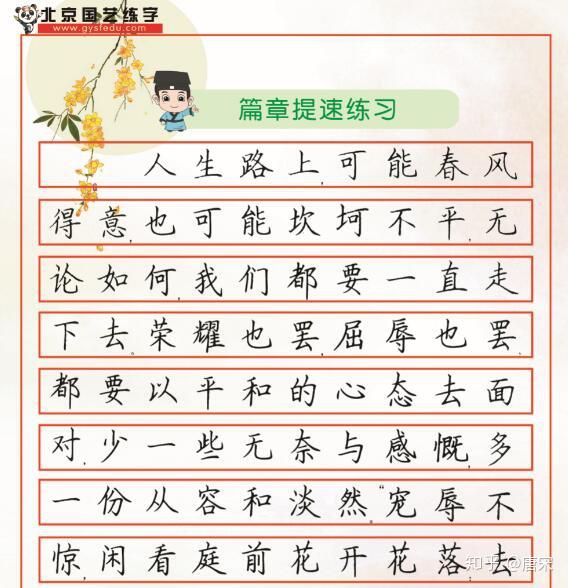 北京国艺练字
www.gysfedu.com
篇章提速练习
人生路上,可能春风
得意,也可能坎坷不平,无
论如何,我们都要一直走
下去。荣耀也罢,屈辱也罢,
都要以平和的心态去面
对,少一些无奈与感慨,多
一份从容和淡然。“宠辱不
惊,闲看庭前花开花落;去
知乎 @唐宋